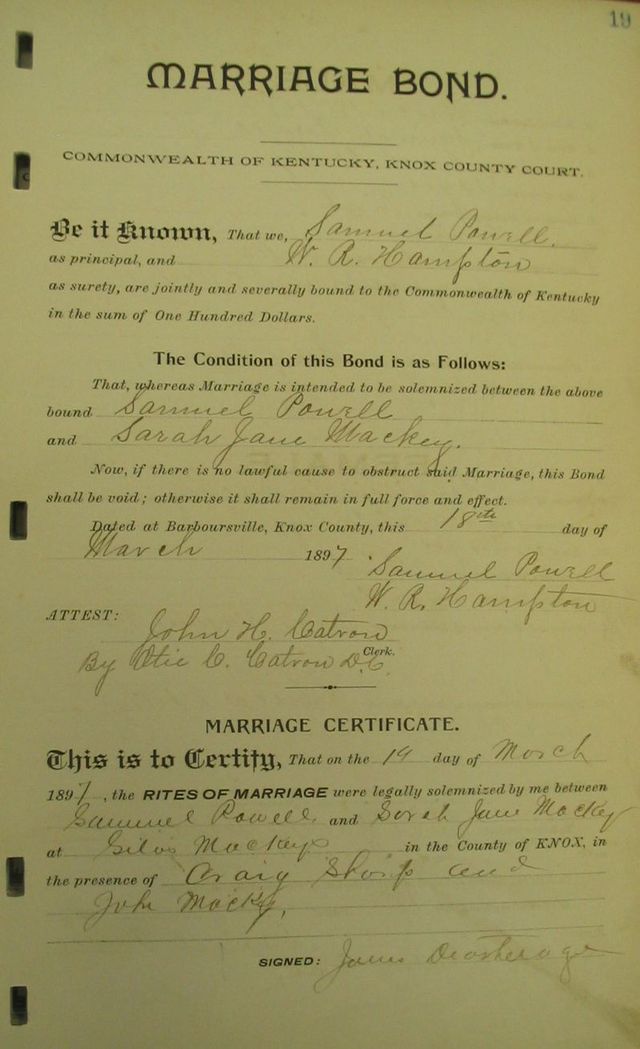 19
MARRIAGE BOND.
COMMONWEALTH OF KENTUCKY, KNOX COUNTY COURT.
Be it Known, That we, Samuel Powell,
as principal, and W. R. Hampton
as surety, are jointly and severally bound to the Commonwealth of Kentucky
in the sum of One Hundred Dollars.
The Condition of this Bond is as Follows:
That, whereas Marriage is intended to be solemnized between the above
bound Samuel Powell
and Sarah Jane Mackey.
Now, if there is no lawful cause to obstruct said Marriage, this Bond
shall be void; otherwise it shall remain in full force and effect.
Dated at Barboursville, Knox County, this 18th day of
March 1897
Samuel Powell
W. R. Hampton
ATTEST:
John H. Catron
Clerk.
By Otie C. Catron D.C.
MARRIAGE CERTIFICATE.
This is to Certify, That on the 19 day of March
1897, the RITES OF MARRIAGE were legally solemnized by me between
Samuel Powell and Sarah Jane Mackey
at Silas Mackeys in the County of KNOX, in
the presence of Craig Sharp and
John Mackey,
SIGNED: James